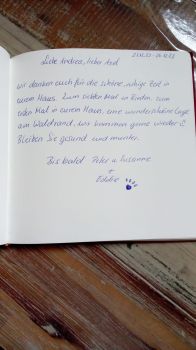 Liebe Andrea, lieber Axel
wir danken euch für die schöne, ruhige Zeit in
eurem Haus. Zum achten Mal in Emden, zum
ersten Mal in eurem Haus, eine wunderschöne Lage
am Waldrand, wir kommen gerne wieder
Bleiben Sie gesund und munter.
Bis bald Peter u. Susanne
+